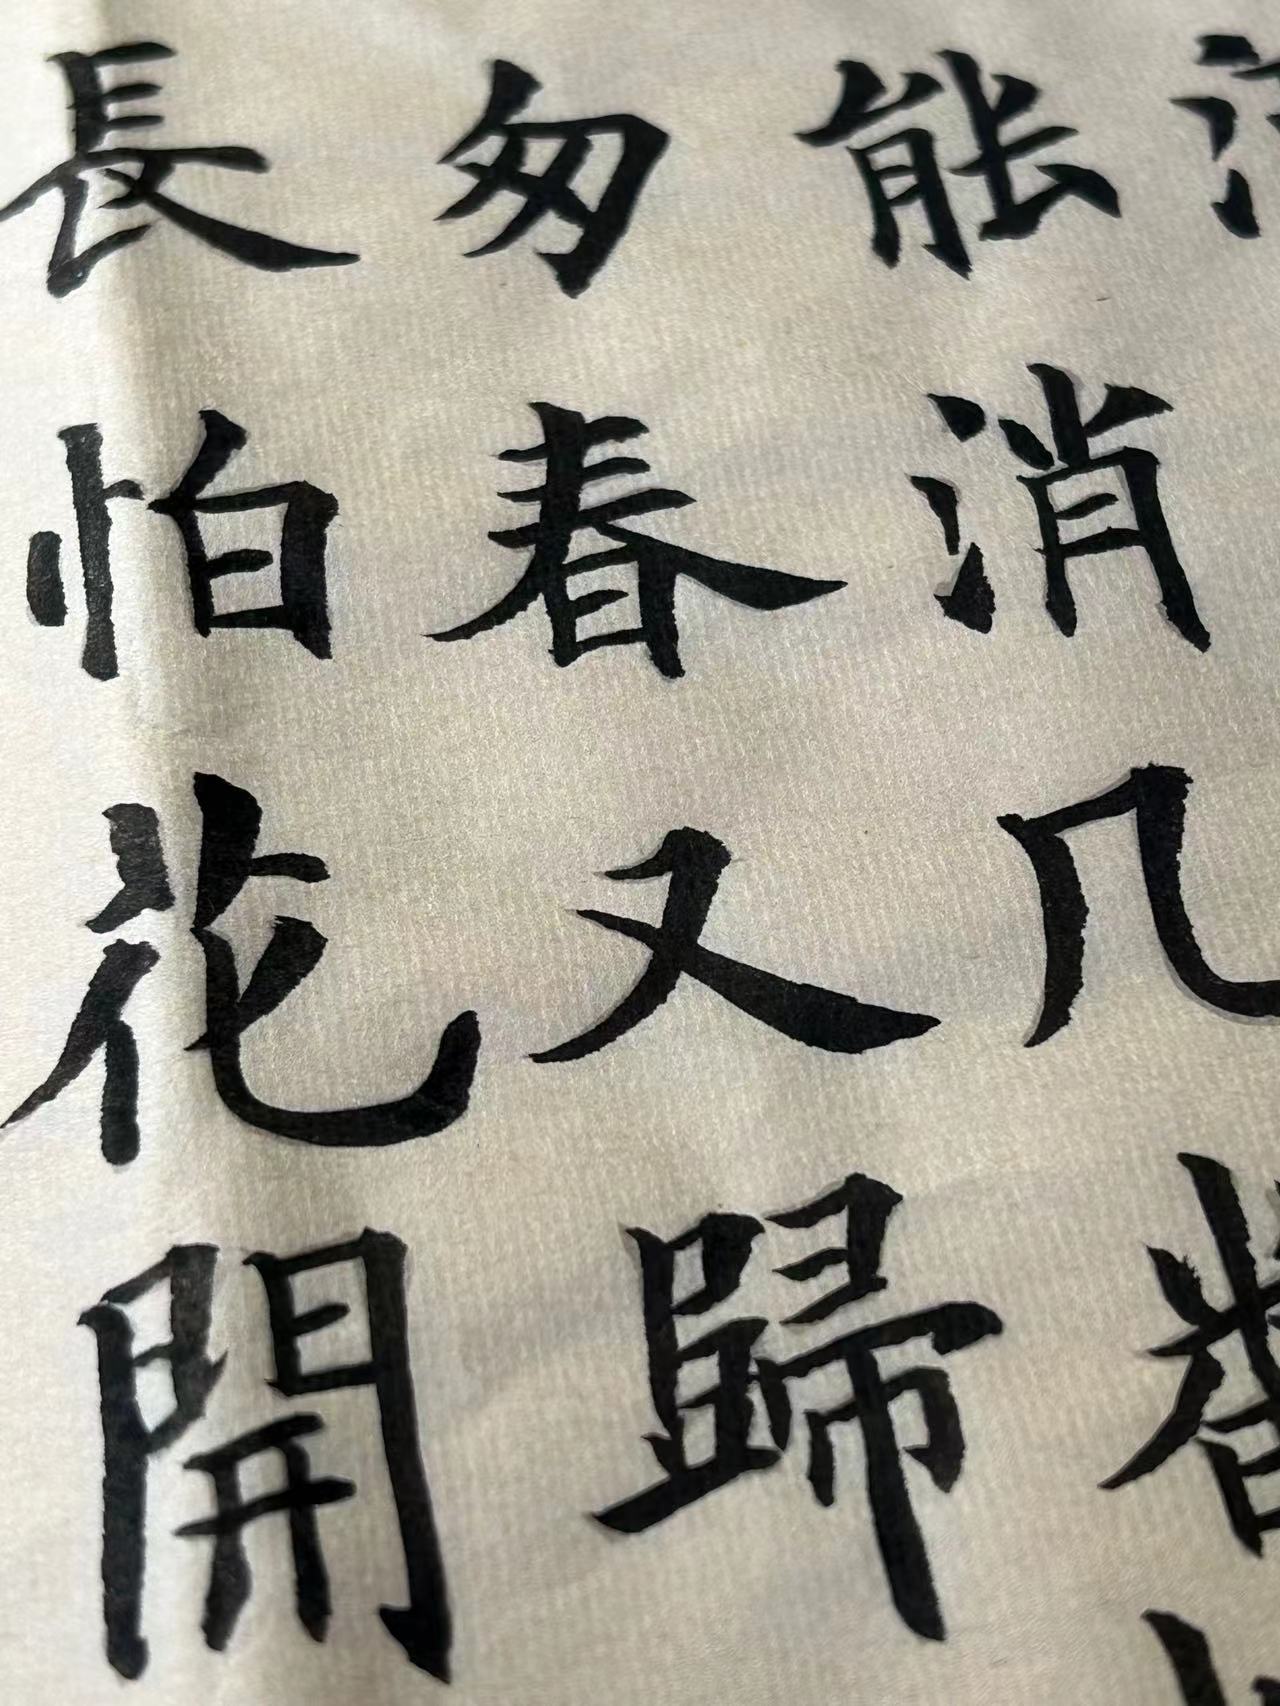 能消几
匆春又歸
長怕花開